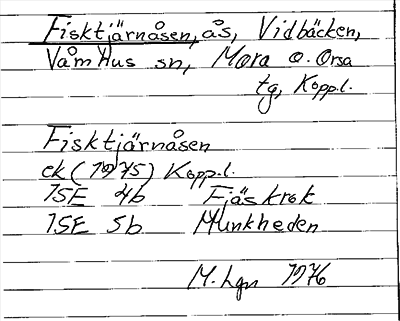 Fisktjärnåsen, ås, Vidbäcken,
Våmhus sn, Mora o. Orsa
tg, Kopp.l.
Fisktjärnåsen
ek (1975) Kopp.l.
15E 4b Fjäskrok
15E 5b Munkheden
M. Lgn 1976